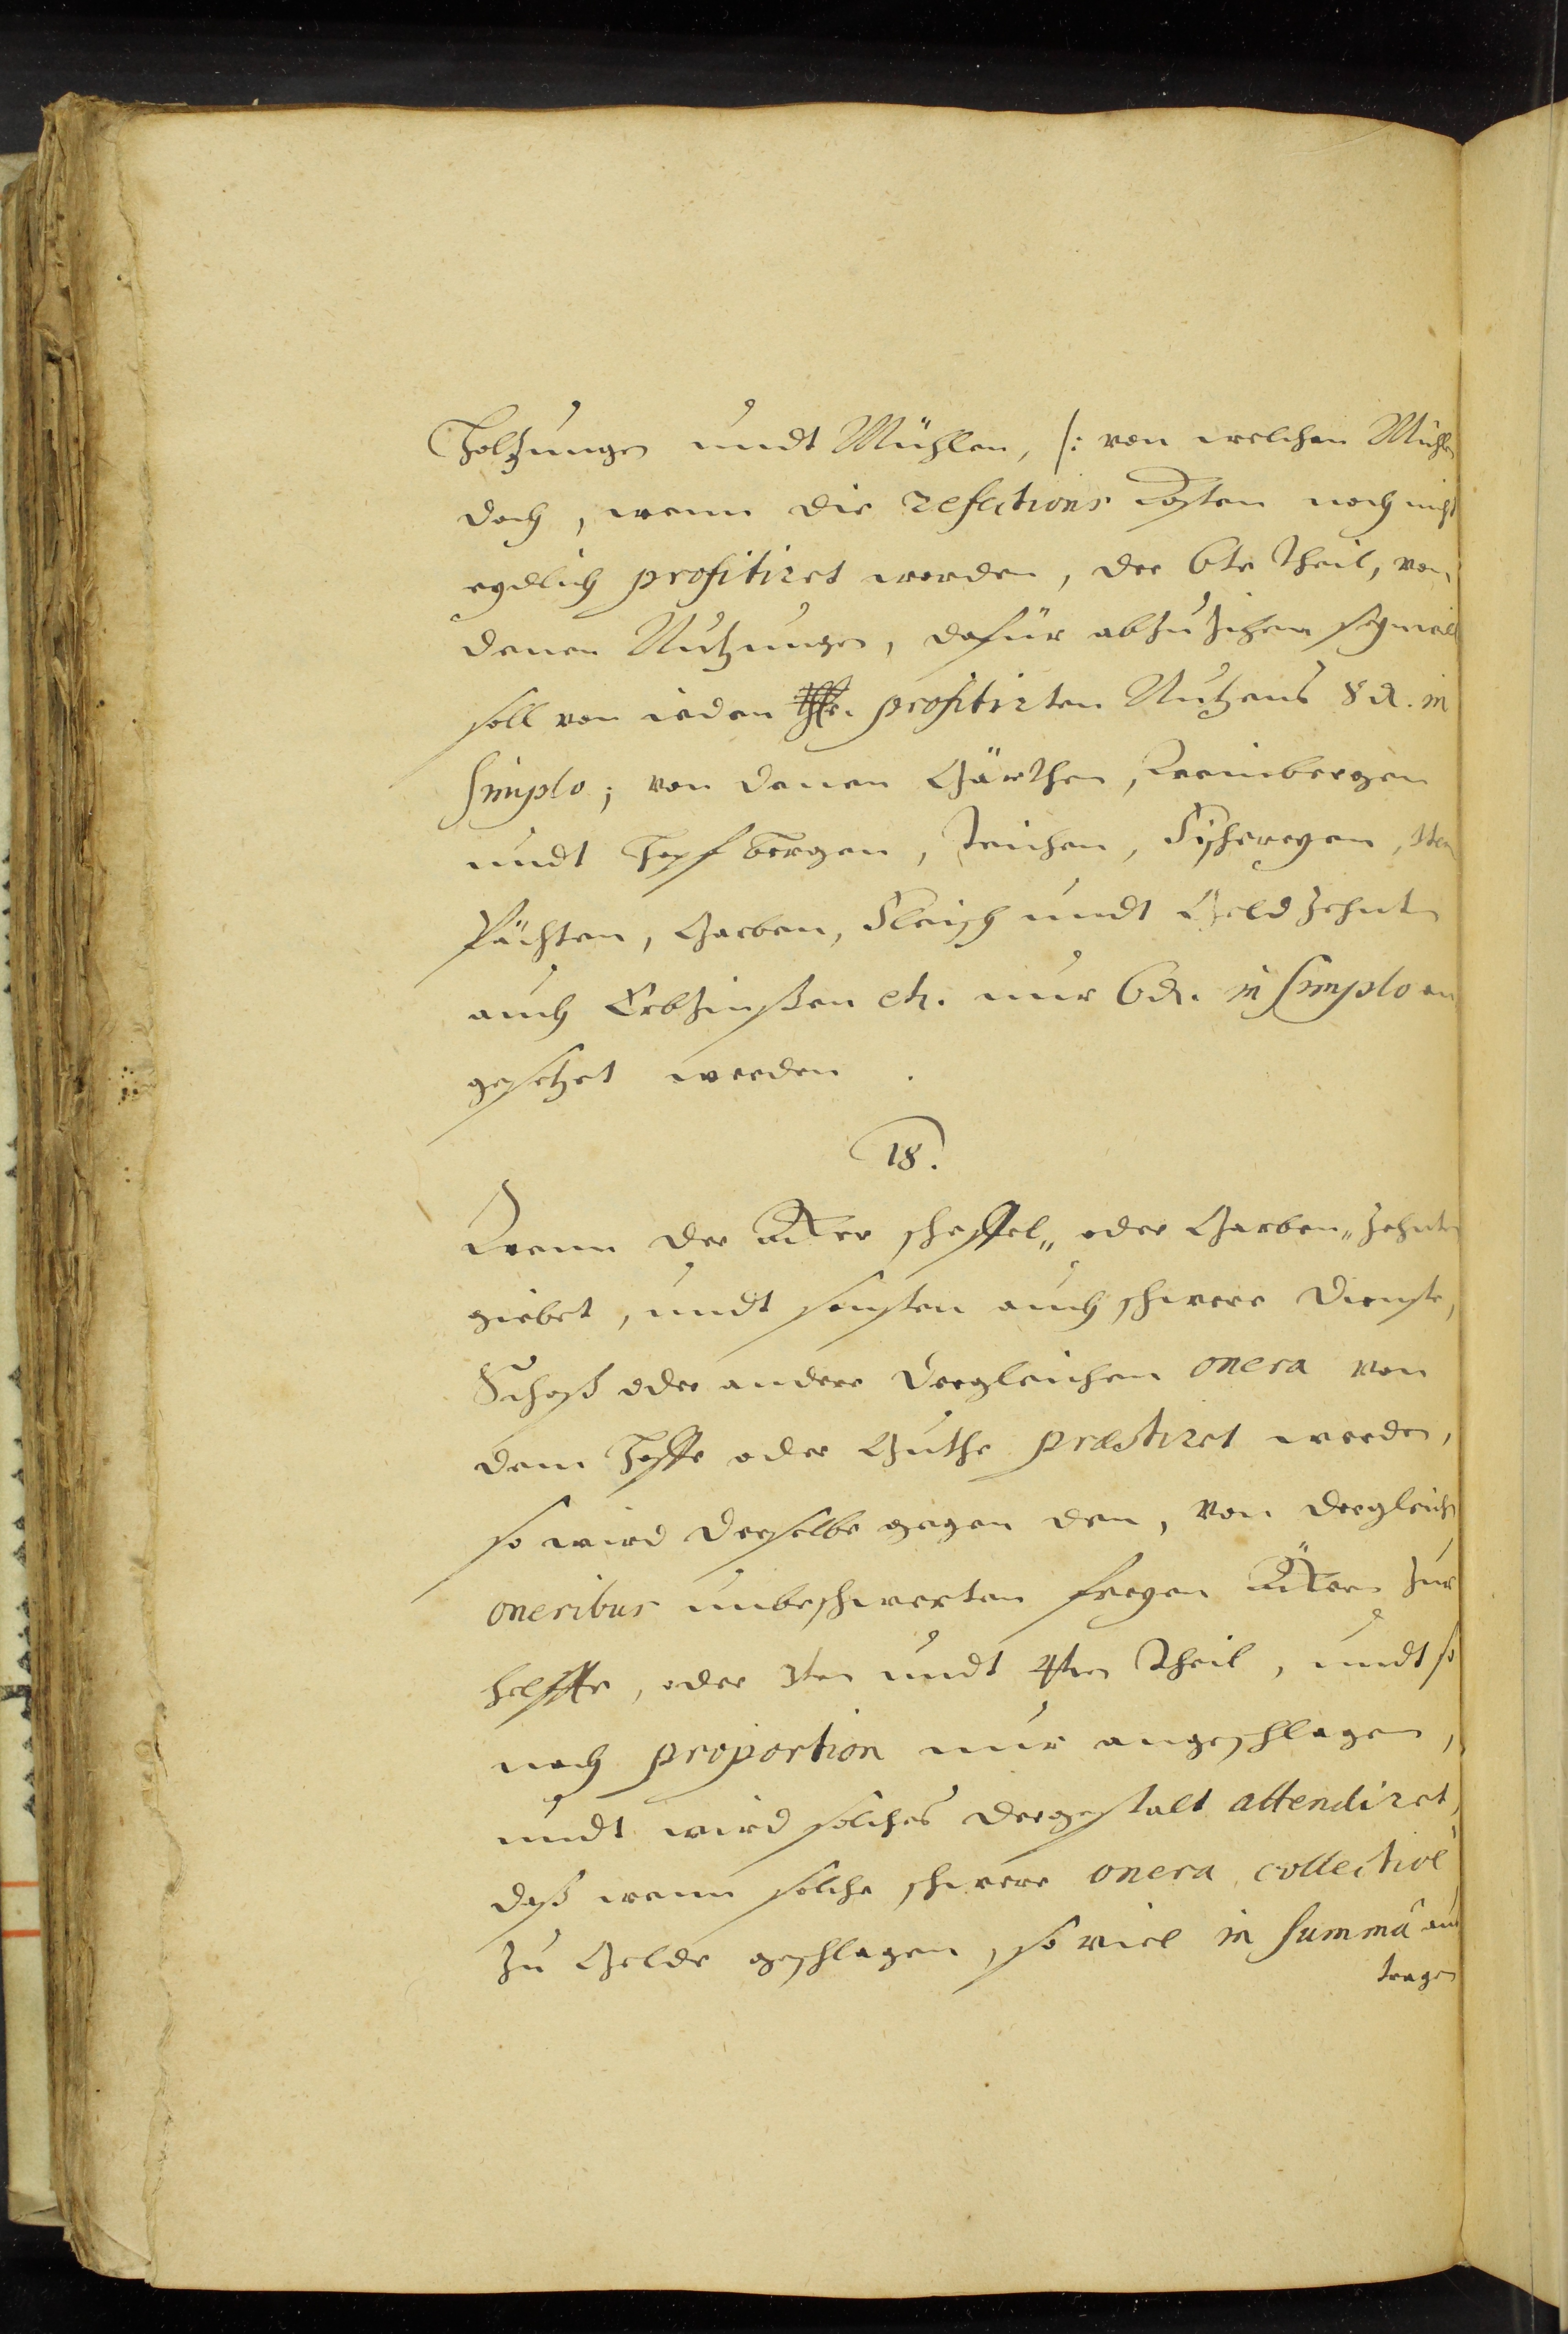 Holtzungen undt Mühlen, /: von welchen Mühlen
doch, wenn die refections Kosten noch nicht
eydlich profitiret worden, der 6te Theil, von
denen Nutzungen, dafür abzuziehen seyn will
soll von ieden profitirten Nutzens 8 d. in
Simplo; von denen Gärthen, Weinbergen
undt Hopfbergen, Teichen, Fischereyen, Item
Pächten, Garben, Fleisch undt Geld Zehnten
auch Erbzinßen etc. nur 6 d. in Simplo an
gesetzet werden.
18.
Wenn der Acker scheffel„ oder Garben„ Zehnten
giebet, undt sonsten auch schwere Dienste,
Schoß oder andere dergleichen onera von
dem Hoffe oder Guthe præstiret werden,
so wird derselbe gegen den, von dergleichen
oneribus unbeschwerten freyen Äckern zur
helffte, oder 3ten undt 4ten Theil, undt so
nach proportion nur angeschlagen,
undt wird solches dergestalt attendiret,
daß wenn solche schwere onera collectivè
zu Gelde geschlagen, so viel in Summâ aus
tragen